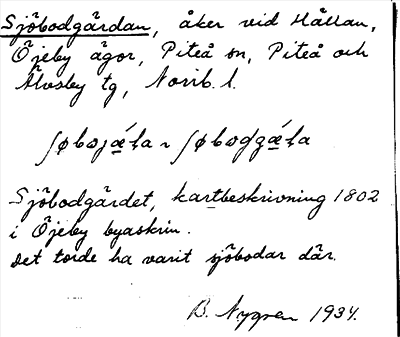 Sjöbodgärdan, åker vid Hällan,
Öjeby ägor, Piteå sn, Piteå och
Älvsby tg, Norrb. l.
ʃøbωjǽṭa ~ ʃøbωdgǽṭa
Sjöbodgärdet, kartbeskrivning 1802
i Öjeby byaskrin.
Det torde ha varit sjöbodar där.
B. Nygren 1934.